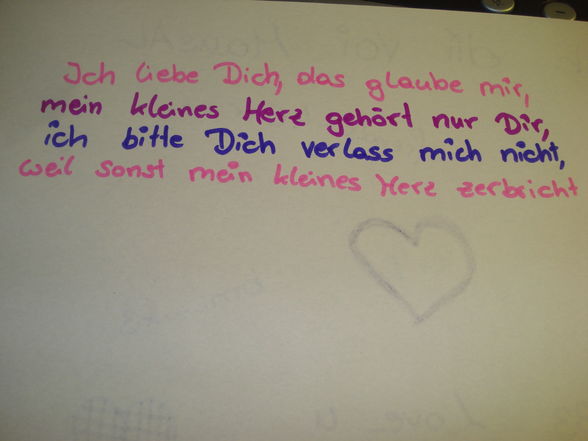 Ich liebe Dich, das glaube mir,
mein kleines Herz gehört nur Dir,
ich bitte Dich verlass mich nicht,
weil sonst mein kleines Herz zerbricht